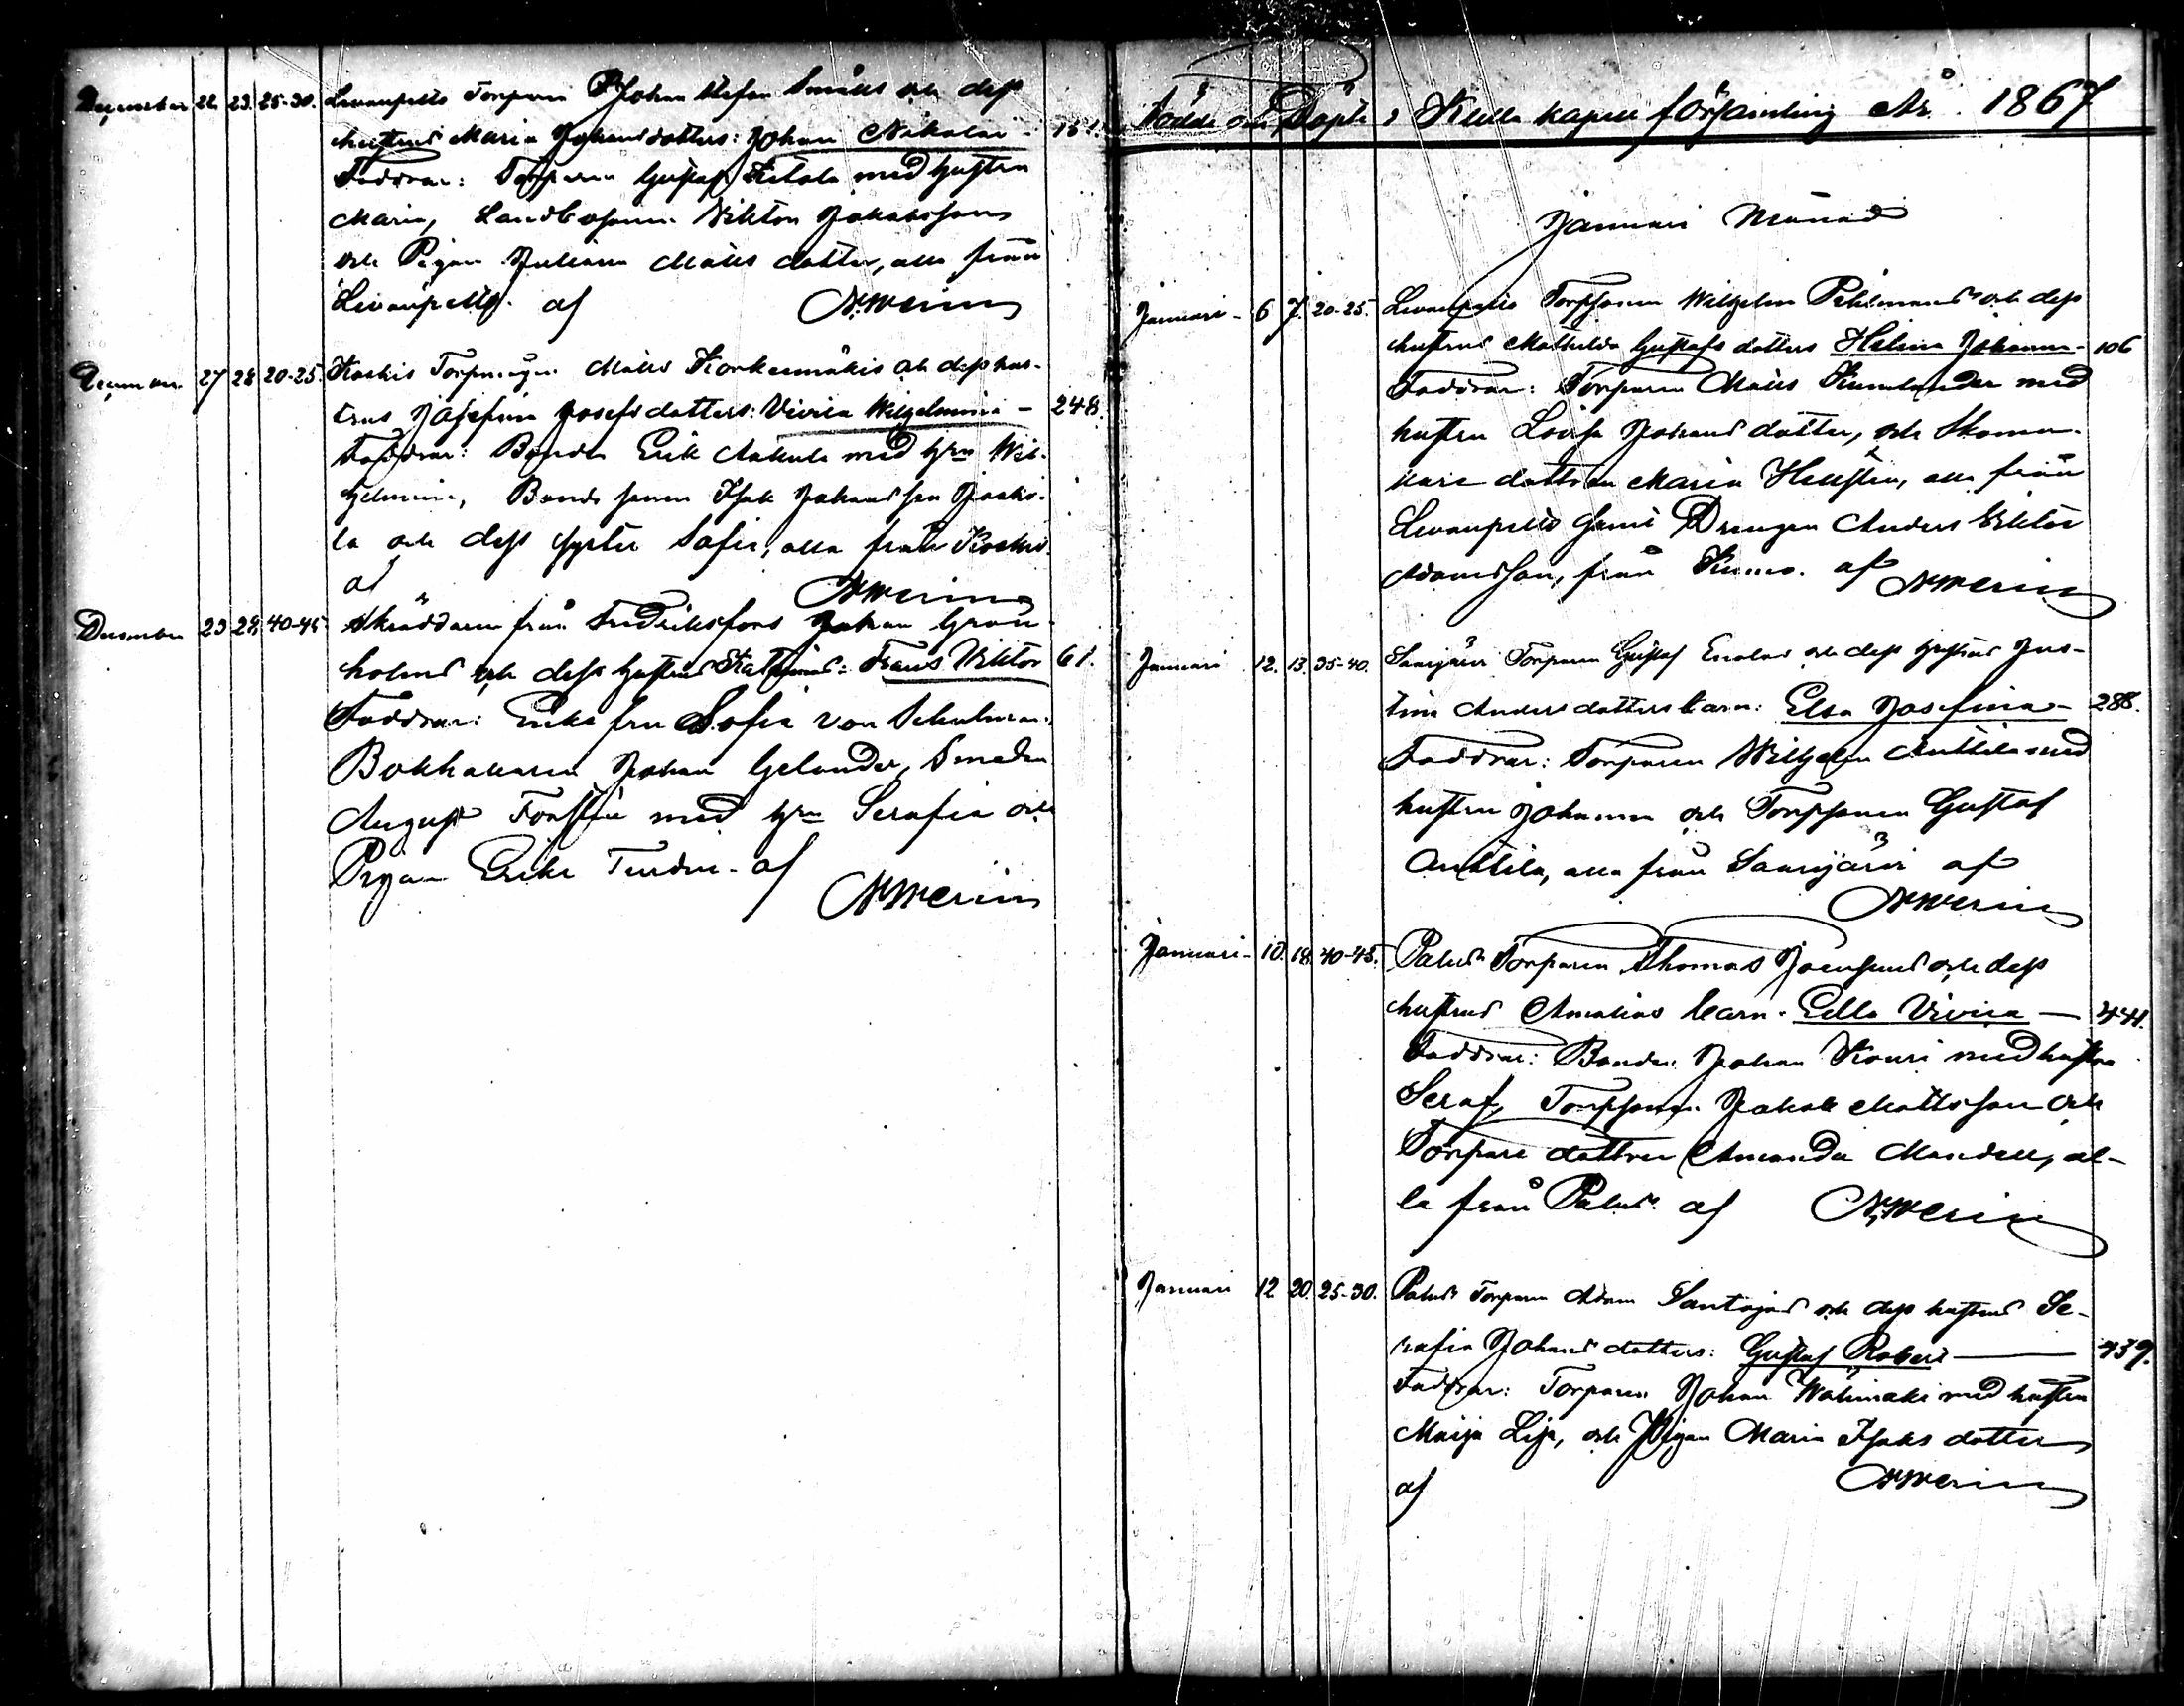 December 22. 23. 25-30. Levanpelto Torparen Johan Stefan Smålls och dess
hustrus Maria Johansdotters: Johan Nikolai - 151.
Faddrar: Torparen Gustaf Ketola med hustru
Maria, Landbosonen Viktor Jakobsson
och Pigan Juliana Matts dotter, alla från
Levanpelto. af N:Merin
December 27 28 20-25. Koskis Torp Matts Korkeamäkis och dess hus-
trus Josefina Josefs dotters: Vivica Wilhelmina - 248.
Faddrar: Bonden Erik Aakula med hrn Wil-
helmina, Bonde sonen Isak Johansson Jaakko-
la och dess syster Sofia, alla från Koskis
af NMerin
December 23 29. 40-45. Skräddaren från Fredriksfors Johan Grön-
holms och dess hustrus Katarinas: Frans Viktor 61.
Faddrar: Enke fru Sofia von Schulman.
Bokhållaren Johan Gelander, Smeden
August Forsten med hrn Serafia och
Pigan Erika af
NMerin
Födde och Döpte i Kulla kapell församling År 1867
Januari Månad
Januari - 6 7. 20-25. Levanpelto Torpsonen Wilhelm Pehlmans och dess
hustrus Mathilda Gustafs dotters Helena Johanna - 106
Faddrar: Torparen Matts Kumlander med
hustru Lovisa Johans dotter, och Skoma-
kare dottren Maria Hellsten, alla från
Levanpelto samt Drengen Anders Viktor
Adamsson, från Kumo. af NMerin
Januari 12. 13. 35-40. Saarijärvi Torparen Gustaf Enolas och dess hustrus Jus-
tina Anders dotters barn: Elsa Josefina - 288.
Faddrar: Torparen Wilhelm Anttila med
hustru Johanna och Torpsonen Gustaf
Anttila, alla från Saarijärvi af
NMerin
Januari - 10. 18. 40-45. Palus Torparen Thomas Joensuus och dess
hustrus Amalias barn. Edla Vivica — 441.
Faddrar: Bonden Johan Kouri med hustru
Seraf, Torpsonen Jakob Mattsson och
Torpare dottren Amanda Mandell, al-
la från Palus. af N:Merin
Januari 12 20. 25-30. Palus Torparen Adam Santajas och dess hustrus Se-
rafia Johans dotters: Gustaf Robert — 439.
Faddrar: Torparen Johan Wähämäki med hustru
Maija Lisa, och Pigan Maria Isaks dotter
af NMerin